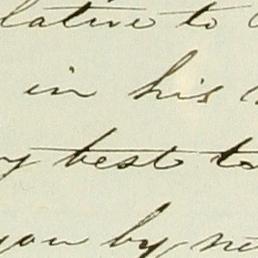 lative to
in his
y best to
you by